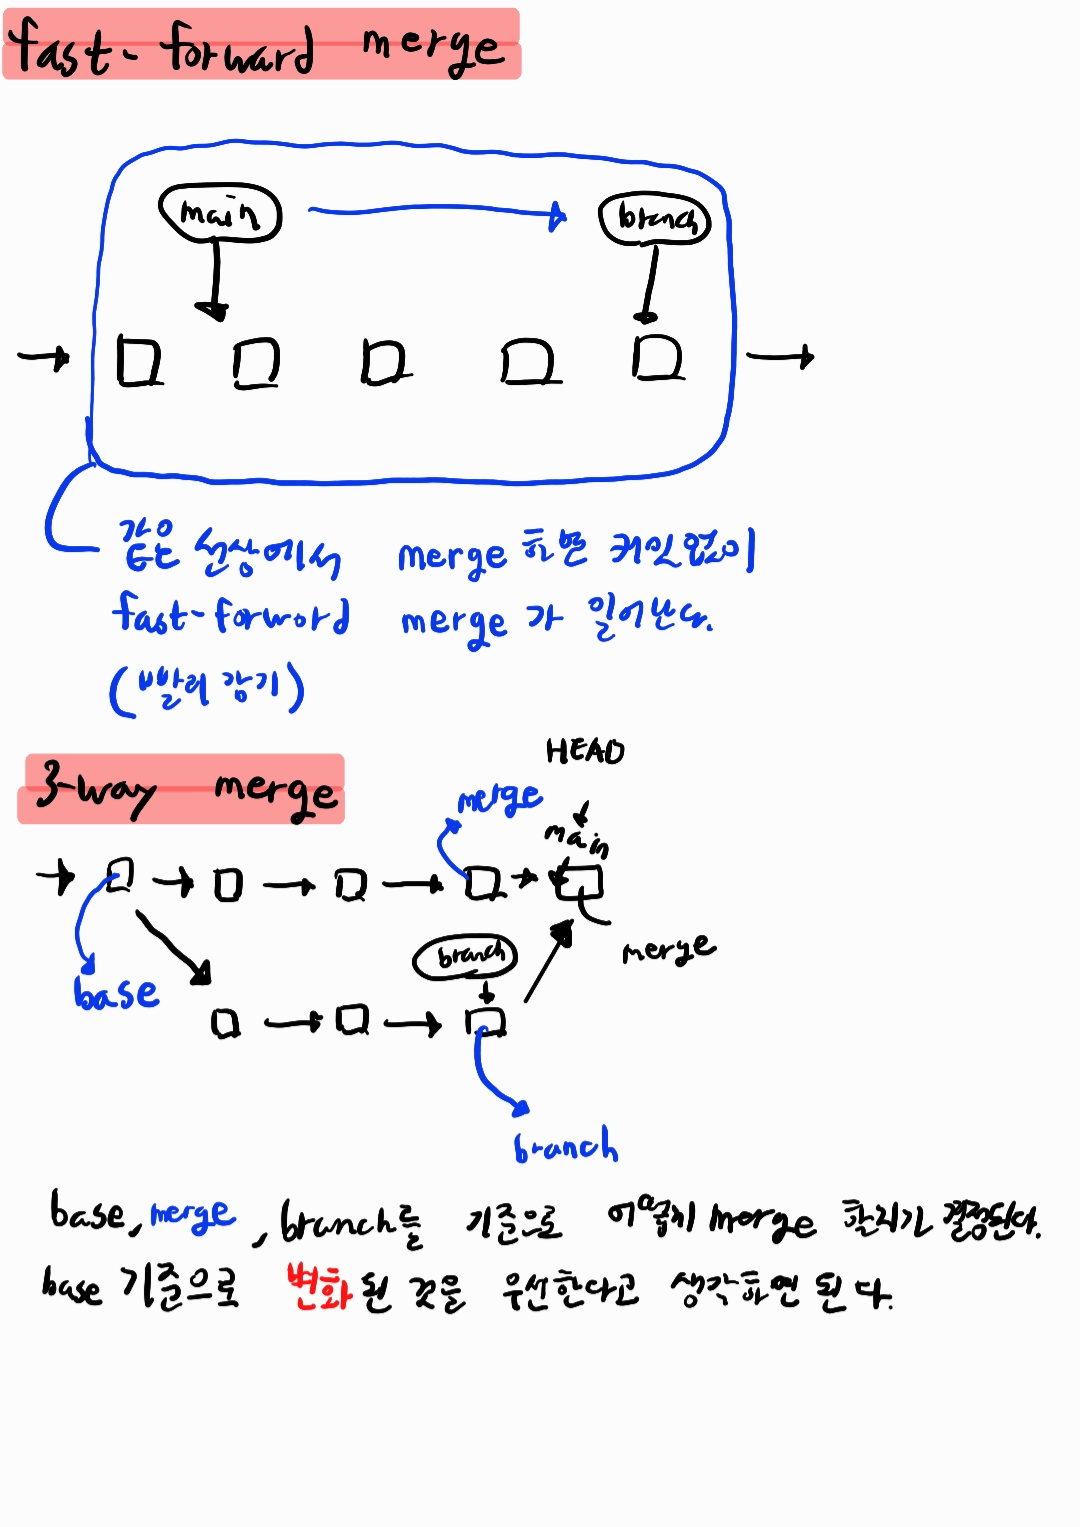 fast-forward merge
main
branch
같은 선상에서 merge 하면 커밋없이
fast-forword merge가 일어난다.
(빨리 감기)
HEAD
3-way merge
merge
main
branch
merge
base
branch
base, merge, branch를 기준으로 어떻게 merge 할지가 결정된다.
base 기준으로 변화된 것을 우선한다고 생각하면 된다.